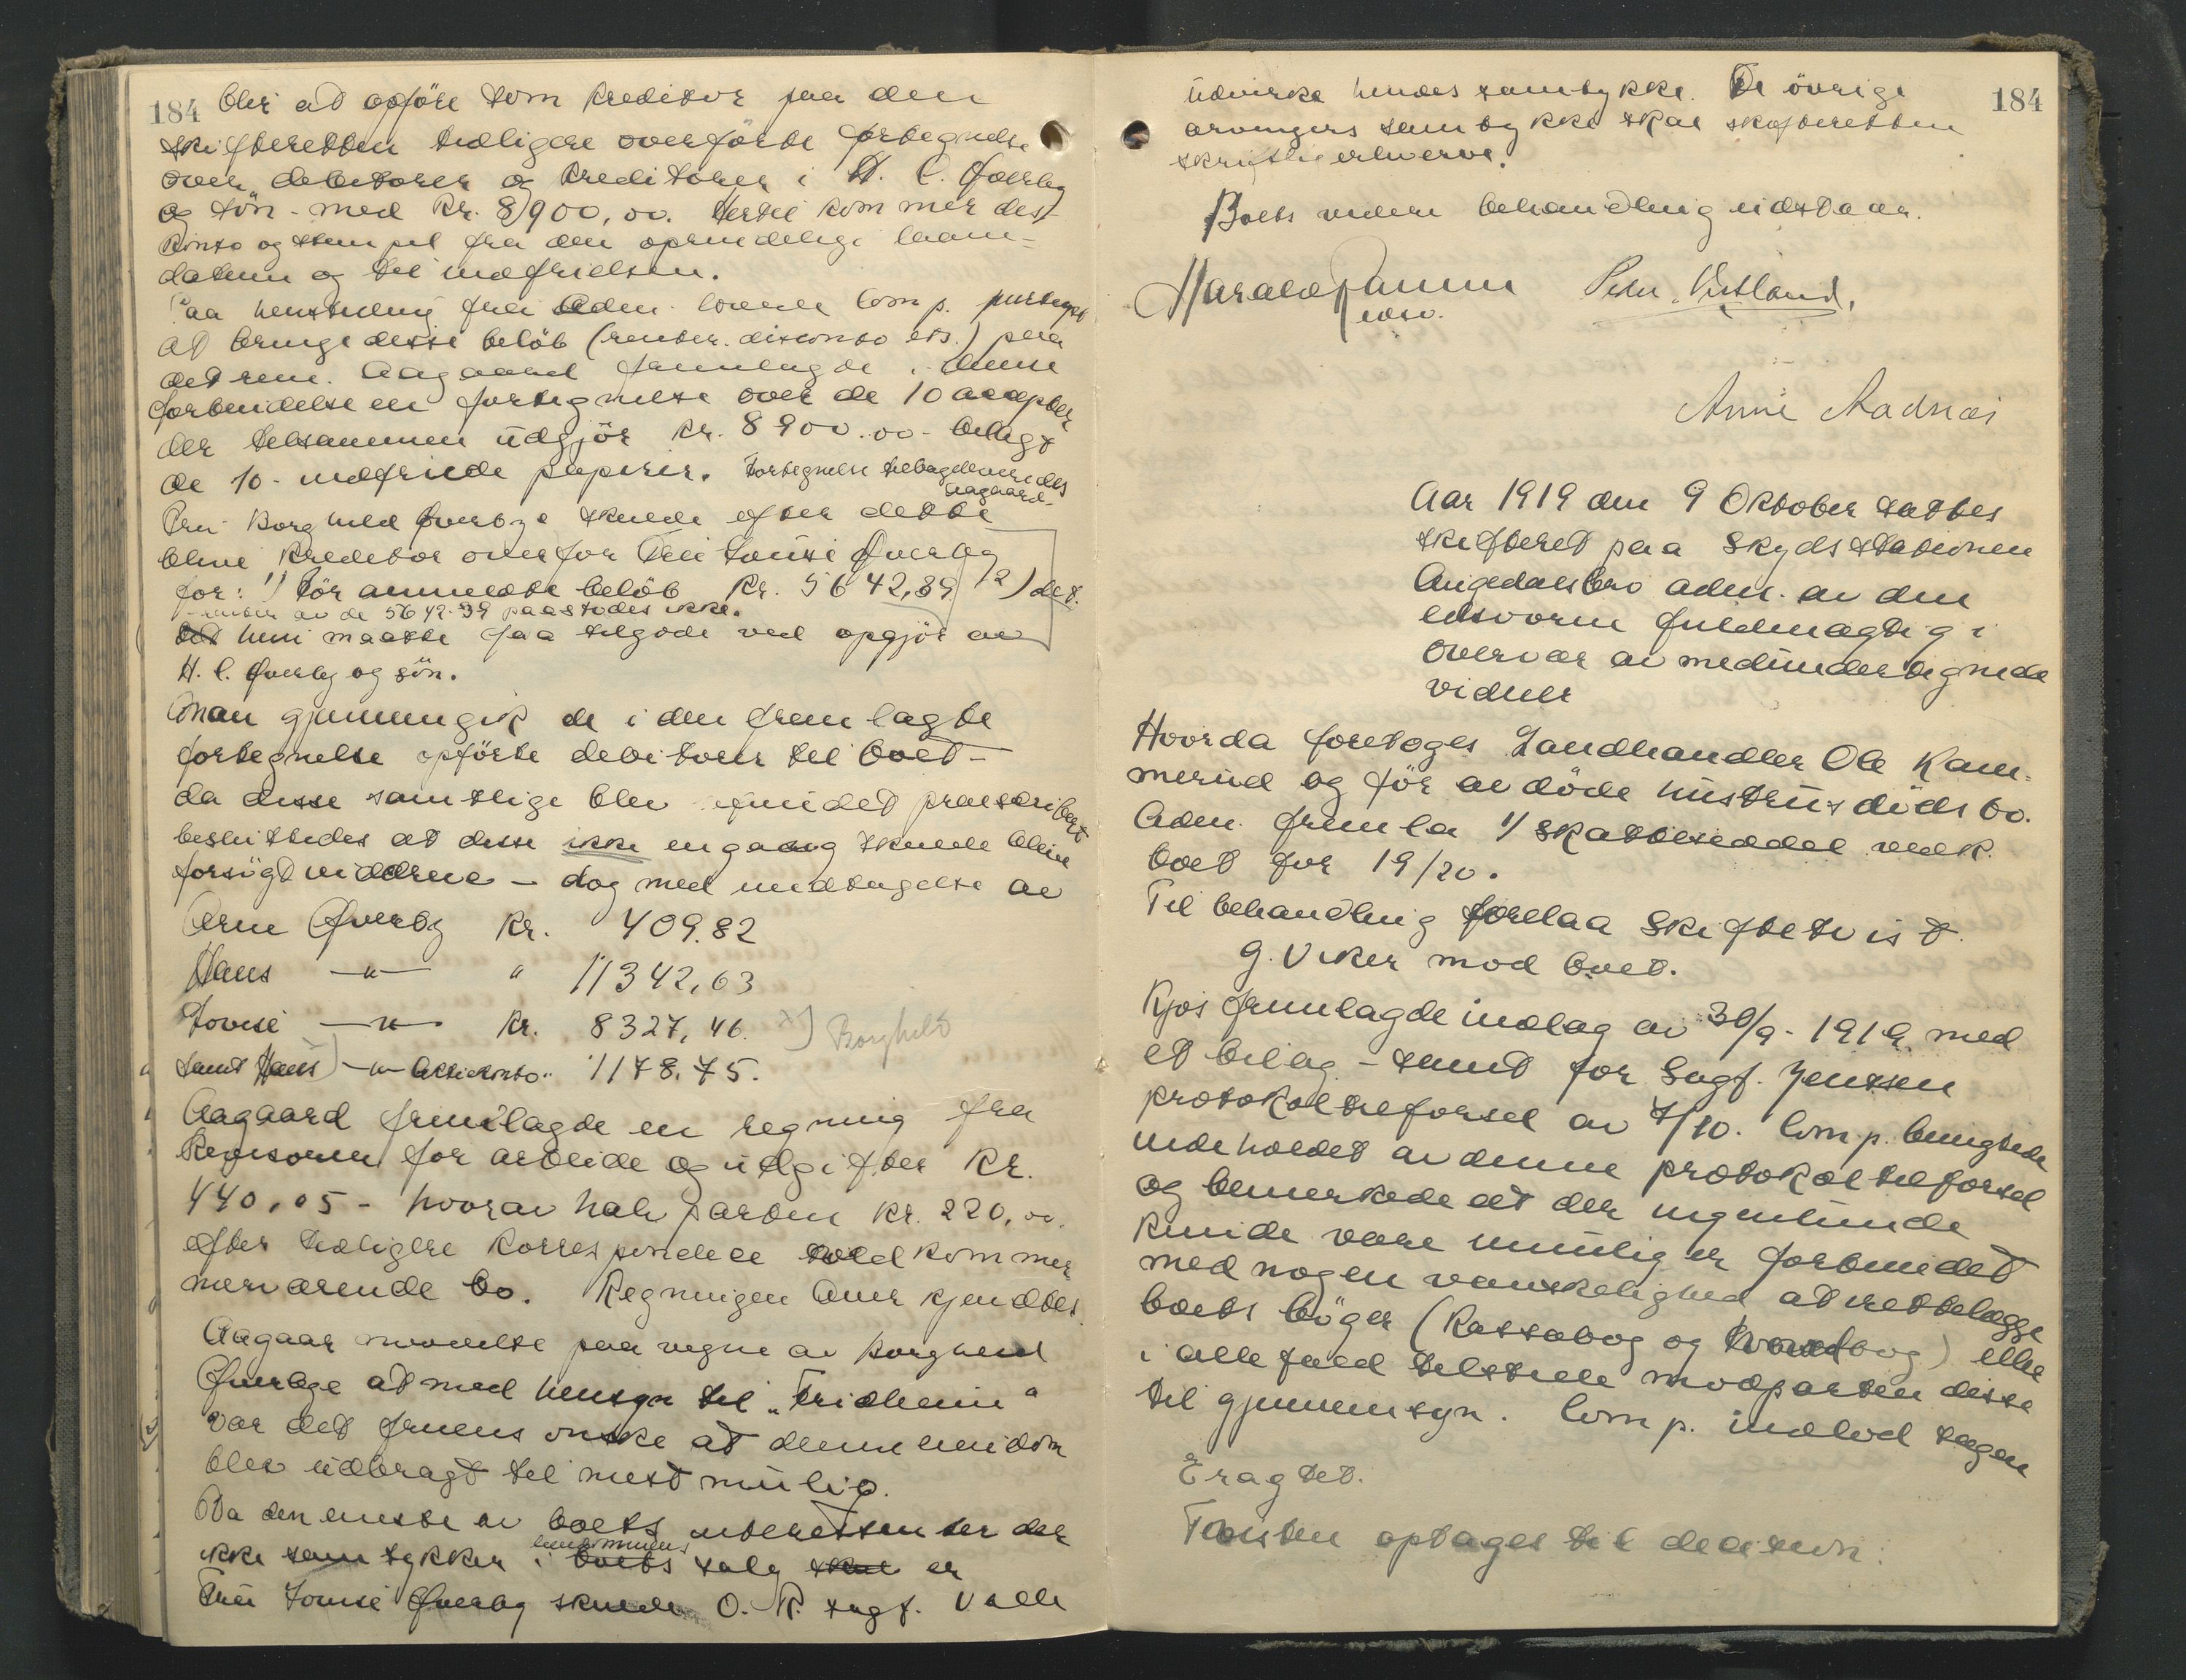 184
blir at opföre som kreditor paa den
skifteretten tidligere overförte fortegnelse
over debitorer og kreditorer i H. C. Øverby
og sön - med kr. 8900,00. Hertil kommer dis-
konto og stempel fra den oprindelige laane-
datum og til indfrielsen.
Paa henstilling fra Adm. lovede Comp.
at bringe disse belöb (renter. diskonto ets.) paa
det rene. Aagaard fremlagde i denne
forbindelse en fortegnelse over de 10 accepter
der tilsammen udgjör kr. 8900.00 - bilagt
de 10 - indfriede papirer. Fortegnelse tilbageleveredes
Aagaard.
Fru Borghild Øverbye skulde efter dette
blive kreditor overfor Fru Louise Øverby
for: 1) för anmeldte belöb kr. 5642,39 2) det.
renter av de 5642.39 paastodes ikke.
hun maatte faa tilgode ved opgjör av
H. C. Øverby og sön.
Man gjennemgik de i den fremlagte
fortegnelse opförte debitorer til boet -
da disse samtlige blev fundet præskribert
besluttedes at disse ikke engang skulde blive
forsögt inddrevne - dog med undtagelse av
Arne Øverby kr. 409.82
Hans —"— " 11342,63
Lovise —"— kr. 8327,46. x) Borghild
samt Hans —"— Aktiekonto " 1178.75.
Aagaard fremlagde en regning fra
Revisoren for arbeide og udgifter kr.
440,05 - hvorav halvparten kr. 220,00.
efter tidligere korrespondece tilkommer
nærværende bo. Regningen anerkjendtes.
Aagaar anmeldte paa vegne av Borghild
Øverbye at med hensyn til "Fridheim"
var det fruens önske at denne eiendom
blev udbragt til mest mulig.
Da den eneste av boets interessenter der
ikke samtykker i eiendommens boets salg skal er
Fru Louise Øverby skulde O. R. sagf. Valle
184
udvirke hendes samtykke. De övrige
arvingers samtykke skal skifteretten
skriftlig erhverve.
Boets videre behandling udstaar.
Harald
edsv.
Anne Aadnæs
Aar 1919 den 9 Oktober sattes
skifteret paa Skydsstationen
Angedalsbro adm. av den
edsvorne fuldmægtig i
overvær av medundertegnede
vidner
Hvorda foretoges Landhandler Ole Kam-
merud og för avdöde hustrus dödsbo.
Adm. fremla 1/ skatteseddel vedk.
boet for 19/20.
Til behandling forelaa Skiftetvist.
G. Viker mod boet.
Kjos fremlagde indlæg av 30/9 - 1919 med
et bilag - samt for Sagf. Jenssen
protokoltilforsel av 7/10. Comp. benegtede
indeholdet av denne protokoltilforsel
og bemerkede at der ingenlunde
kunde være umulig er forbundet
med nogen vanskelighed at retteligge
boets böger (kassabog og hovedbog) eller
i allefald tilstille modparten disse
til gjennemsyn. Comp. indlod sagen
Eragtet.
Tvisten optages til decision.